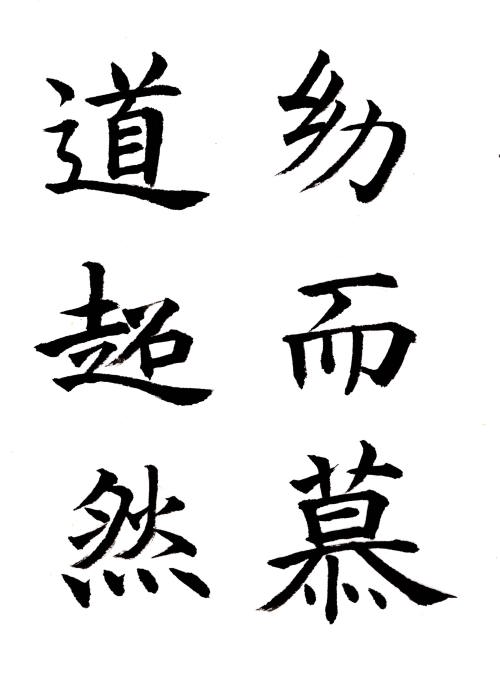 幼而慕
道超然